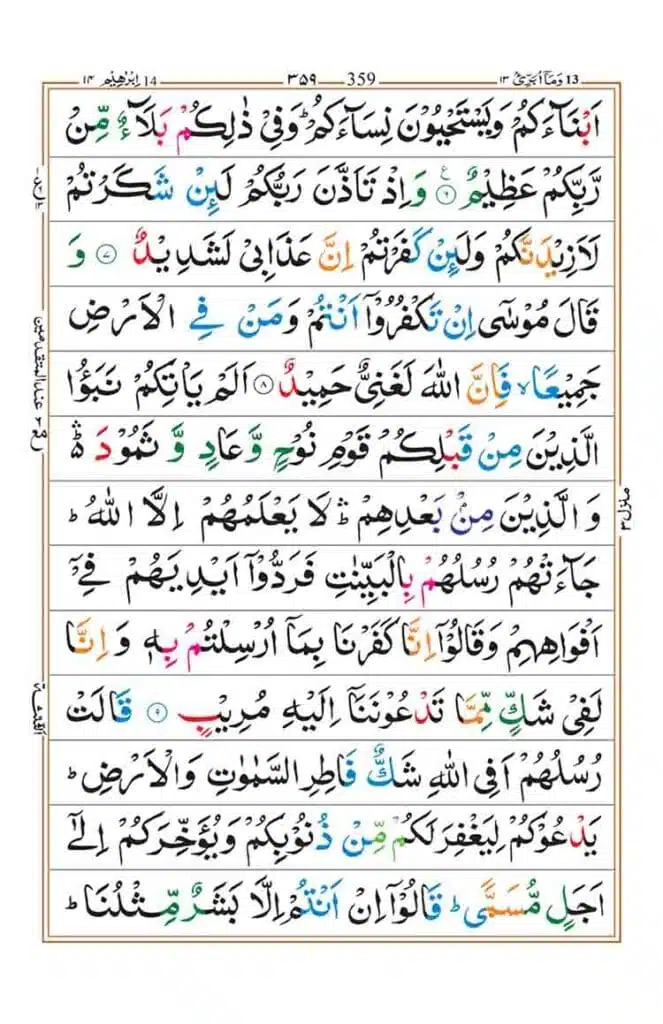 13 وَمَآ اُبَرِّئُ ١٣ 359 ٣٥٩ 14 اِبْرٰهِيْم ١٤
اَبْنَآءَكُمْ وَيَسْتَحْيُوْنَ نِسَآءَكُمْ ؕ وَفِيْ ذٰلِكُمْ بَلَآءٌ مِّنْ
رَّبِّكُمْ عَظِيْمٌ ۝٦ وَاِذْ تَاَذَّنَ رَبُّكُمْ لَئِنْ شَكَرْتُمْ
لَاَزِيْدَنَّكُمْ وَلَئِنْ كَفَرْتُمْ اِنَّ عَذَابِيْ لَشَدِيْدٌ ۝٧ وَ
قَالَ مُوْسٰٓى اِنْ تَكْفُرُوْٓا اَنْتُمْ وَمَنْ فِي الْاَرْضِ
جَمِيْعًا ۙ فَاِنَّ اللّٰهَ لَغَنِيٌّ حَمِيْدٌ ۝٨ اَلَمْ يَاْتِكُمْ نَبَؤُا
الَّذِيْنَ مِنْ قَبْلِكُمْ قَوْمِ نُوْحٍ وَّعَادٍ وَّ ثَمُوْدَ ۛؕ
وَ الَّذِيْنَ مِنْ بَعْدِهِمْ ۛؕ لَا يَعْلَمُهُمْ اِلَّا اللّٰهُ ؕ
جَآءَتْهُمْ رُسُلُهُمْ بِالْبَيِّنٰتِ فَرَدُّوْٓا اَيْدِيَهُمْ فِيْٓ
اَفْوَاهِهِمْ وَقَالُوْٓا اِنَّا كَفَرْنَا بِمَآ اُرْسِلْتُمْ بِهٖ وَ اِنَّا
لَفِيْ شَكٍّ مِّمَّا تَدْعُوْنَنَآ اِلَيْهِ مُرِيْبٍ ۝٩ قَالَتْ
رُسُلُهُمْ اَفِي اللّٰهِ شَكٌّ فَاطِرِ السَّمٰوٰتِ وَالْاَرْضِ ؕ
يَدْعُوْكُمْ لِيَغْفِرَ لَكُمْ مِّنْ ذُنُوْبِكُمْ وَيُؤَخِّرَكُمْ اِلٰٓى
اَجَلٍ مُّسَمًّى ؕ قَالُوْٓا اِنْ اَنْتُمْ اِلَّا بَشَرٌ مِّثْلُنَا ؕ
منزل ٣